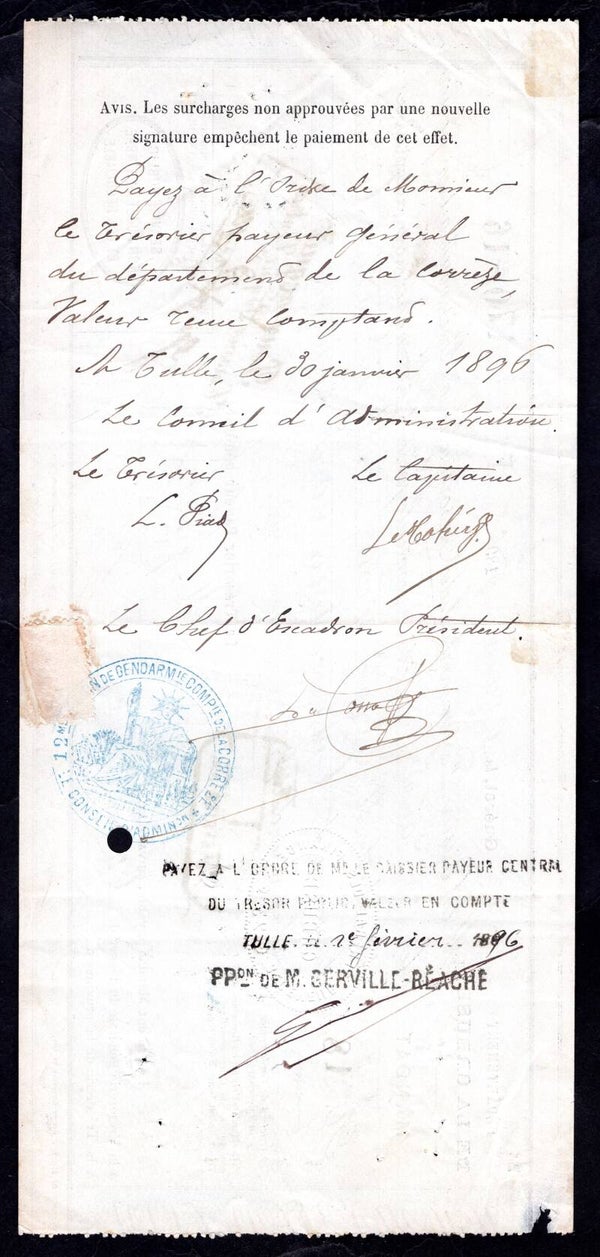 Avis. Les surcharges non approuvées par une nouvelle
signature empêchent le paiement de cet effet.
Payez à l'Ordre de Monsieur
le Trésorier payeur général
du département de la Corrèze,
Valeur reçue comptant.
A Tulle, le 30 janvier 1896
Le Conseil d'Administration.
Le Trésorier
Le Capitaine
L.
Le Chef d'Escadron Président.
12ME LÉGION DE GENDARMIE COMPIE DE LA CORRÈZE
LE CONSEIL D'ADMINON
PAYEZ A L'ORDRE DE MR LE CAISSIER PAYEUR CENTRAL
DU TRESOR PUBLIC, VALEUR EN COMPTE
TULLE, LE 1er février 1896
PPON DE M. GERVILLE-RÉACHE